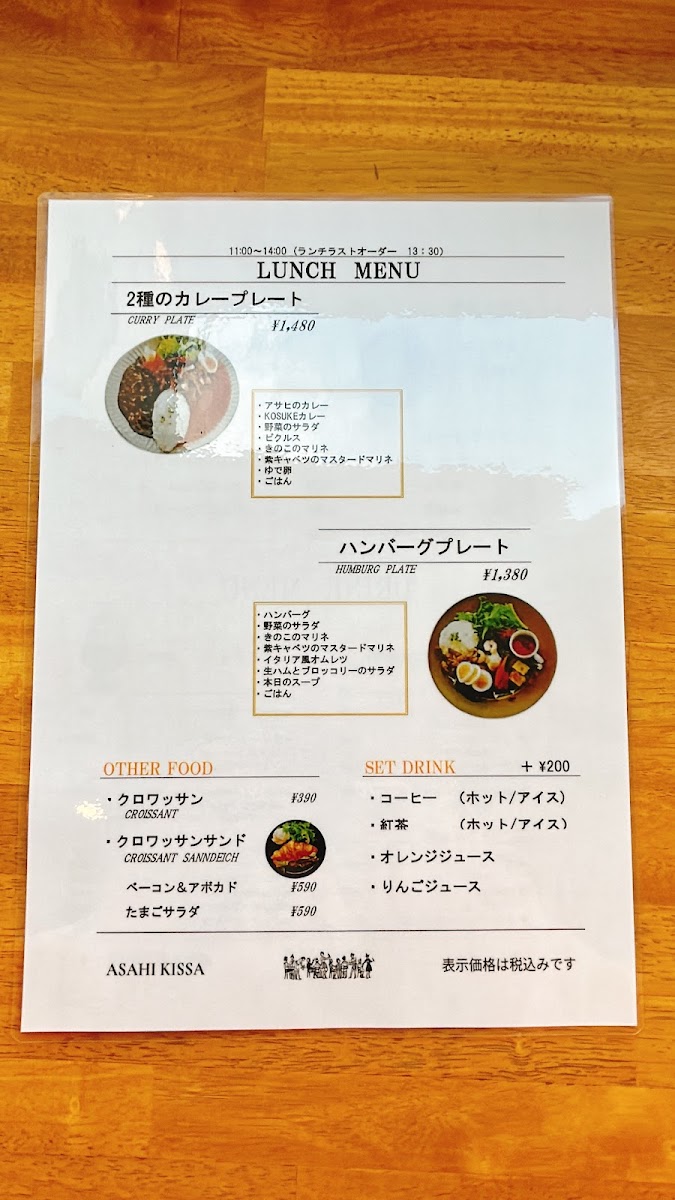 11:00～14:00 (ランチラストオーダー 13：30)
LUNCH MENU
2種のカレープレート
CURRY PLATE
¥1,480
・アサヒのカレー
・KOSUKEカレー
・野菜のサラダ
・ピクルス
・きのこのマリネ
・紫キャベツのマスタードマリネ
・ゆで卵
・ごはん
ハンバーグプレート
HUMBURG PLATE
¥1,380
・ハンバーグ
・野菜のサラダ
・きのこのマリネ
・紫キャベツのマスタードマリネ
・イタリア風オムレツ
・生ハムとブロッコリーのサラダ
・本日のスープ
・ごはん
OTHER FOOD
・クロワッサン ¥390
CROISSANT
・クロワッサンサンド
CROISSANT SANNDEICH
ベーコン＆アボカド ¥590
たまごサラダ ¥590
SET DRINK ＋ ¥200
・コーヒー （ホット/アイス）
・紅茶 （ホット/アイス）
・オレンジジュース
・りんごジュース
ASAHI KISSA
表示価格は税込みです